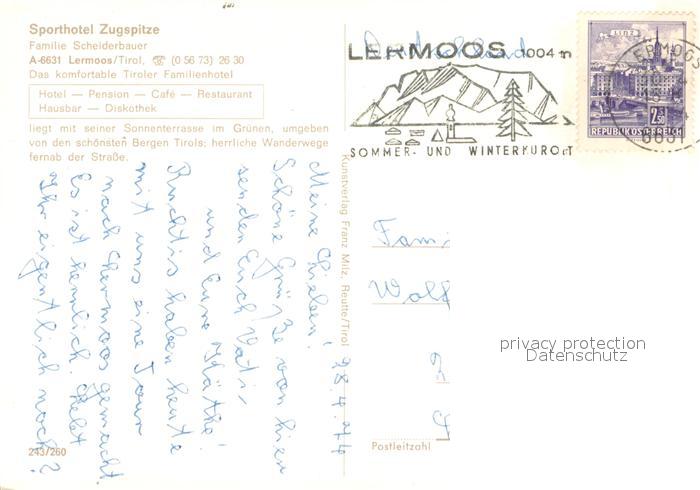 Sporthotel Zugspitze
Familie Scheiderbauer
A-6631 Lermoos/Tirol, ☏ (0 56 73) 26 30
Das komfortable Tiroler Familienhotel
Hotel — Pension — Café — Restaurant
Hausbar — Diskothek
liegt mit seiner Sonnenterrasse im Grünen, umgeben
von den schönsten Bergen Tirols; herrliche Wanderwege
fernab der Straße.
28.4.74
Meine Lieben!
Schöne Grüße von hier
senden Euch Vati
und Eure Käthe!
Ruchtis haben heute
mit uns eine Tour
nach Lermoos gemacht.
Es ist herrlich. Lebt
Ihr eigentlich noch?
243/260
Kunstverlag Franz Milz, Reutte/Tirol
Deutschland
LERMOOS 1004 m
SOMMER- UND WINTERKURORT
LINZ
2.50
REPUBLIK ÖSTERREICH
LERMOOS
6631
Fami
Wolf
Postleitzahl
privacy protection
Datenschutz